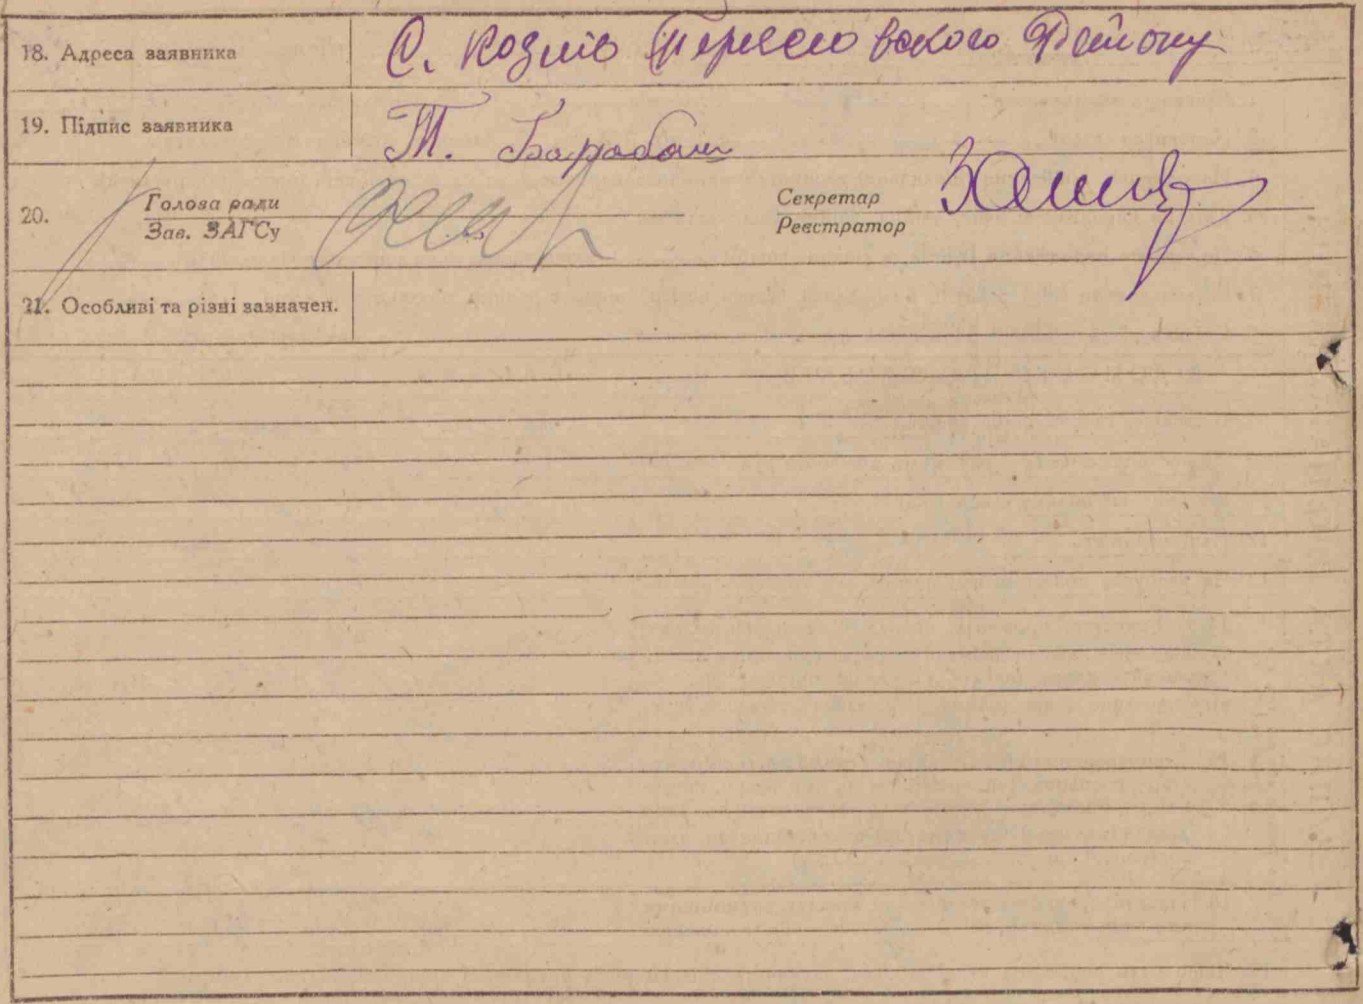 18. Адреса заявника С. Козлів Переяславского Району
19. Підпис заявника Т. Барабаш
20. Голова ради Секретар
Зав. ЗАГСу Реєстратор
21. Особливі та різні зазначен.